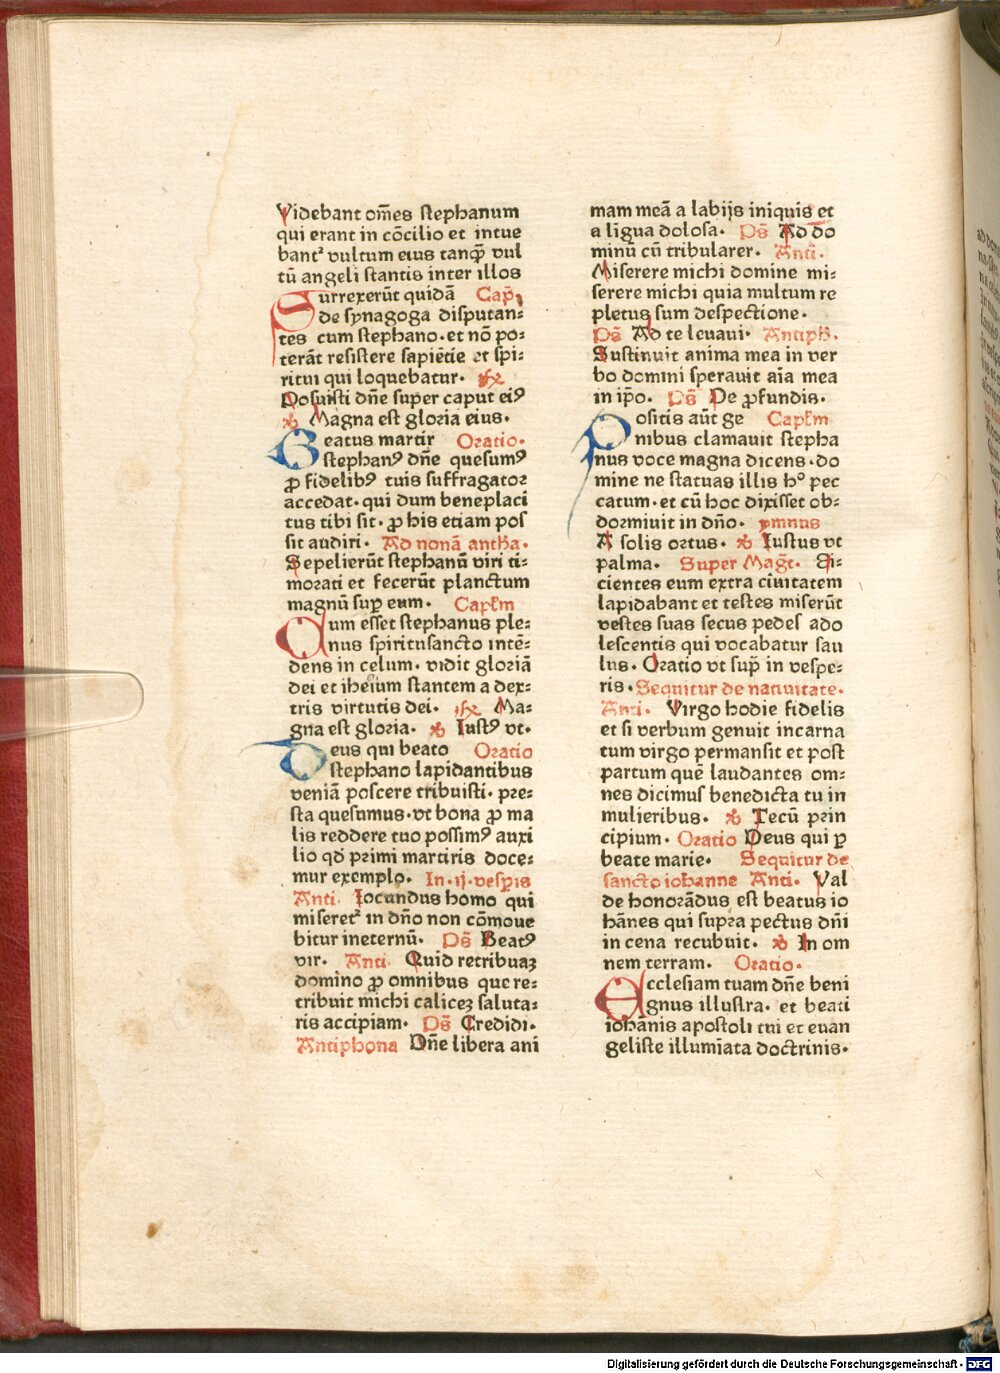 Videbant om̄es stephanum
qui erant in cōcilio et intue
bant᷑ vultum eius tanqꝫ vul
tū angeli stantis inter illos
Surrexerūt quidā Cap̄.
de synagoga disputan⸗
tes cum stephano. et nō po⸗
terāt resistere sapiētie et spi⸗
ritui qui loquebatur. ℟
Posuisti dn̄e super caput eiꝰ
℣ Magna est gloria eius.
Beatus martir Oratio.
stephanꝰ dn̄e quesumꝰ
ꝓ fidelibꝰ tuis suffragatoꝛ
accedat. qui dum beneplaci
tus tibi sit. ꝓ his etiam pos
sit audiri. Ad nonā antħa.
Sepelierūt stephanū viri ti⸗
morati et fecerūt planctum
magnū suꝑ eum. Capl̄m
Cum esset stephanus ple⸗
nus spiritusancto intē⸗
dens in celum. vidit gloriā
dei et ihesum stantem a dex⸗
tris virtutis dei. ℟ Ma⸗
gna est gloria. ℣ Iustꝰ vt.
Deus qui beato Oratio
stephano lapidantibus
veniā poscere tribuisti. pre⸗
sta quesumus. vt bona ꝓ ma
lis reddere tuo possimꝰ auxi
lio qd̄ primi martiris doce⸗
mur exemplo. In. ij. vesꝑis
Anti. Iocundus homo qui
miseret᷑ in dn̄o non cōmoue
bitur ineternū. Ps̄ Beatꝰ
vir. Anti. Quid retribuaꝫ
domino ꝓ omnibus que re⸗
tribuit michi caliceꝫ saluta⸗
ris accipiam. Ps̄ Credidi.
Antiphona Dn̄e libera ani
mam meā a labijs iniquis et
a līgua dolosa. Ps̄ Ad do
minū cū tribularer. Anti.
Miserere michi domine mi⸗
serere michi quia multum re
pletus sum despectione.
Ps̄ Ad te leuaui. Antiph̄.
Sustinuit anima mea in ver
bo domini sperauit aīa mea
in ip̄o. Ps̄ De ꝓfundis.
Positis aūt ge Capl̄m
nibus clamauit stepha
nus voce magna dicens. do
mine ne statuas illis hᵒ pec
catum. et cū hoc dixisset ob⸗
dormiuit in dn̄o. ymnus
A solis ortus. ℣ Iustus vt
palma. Super Magt̄. Ei⸗
cientes eum extra ciuitatem
lapidabant et testes miserūt
vestes suas secus pedes ado
lescentis qui vocabatur sau
lus. Oratio vt suꝑ in vespe⸗
ris. Sequitur de natiuitate.
Anti. Virgo hodie fidelis
et si verbum genuit incarna
tum virgo permansit et post
partum quē laudantes om⸗
nes dicimus benedicta tu in
mulieribus. ℣ Tecū prin
cipium. Oratio Deus qui ꝑ
beate marie. Sequitur de
sancto iohanne Anti. Val
de honorādus est beatus io
hānes qui supra pectus dn̄i
in cena recubuit. ℣ In om
nem terram. Oratio.
Ecclesiam tuam dn̄e beni
gnus illustra. et beati
iohanis apostoli tui et euan
geliste illumīata doctrinis.
Digitalisierung gefördert durch die Deutsche Forschungsgemeinschaft - DFG